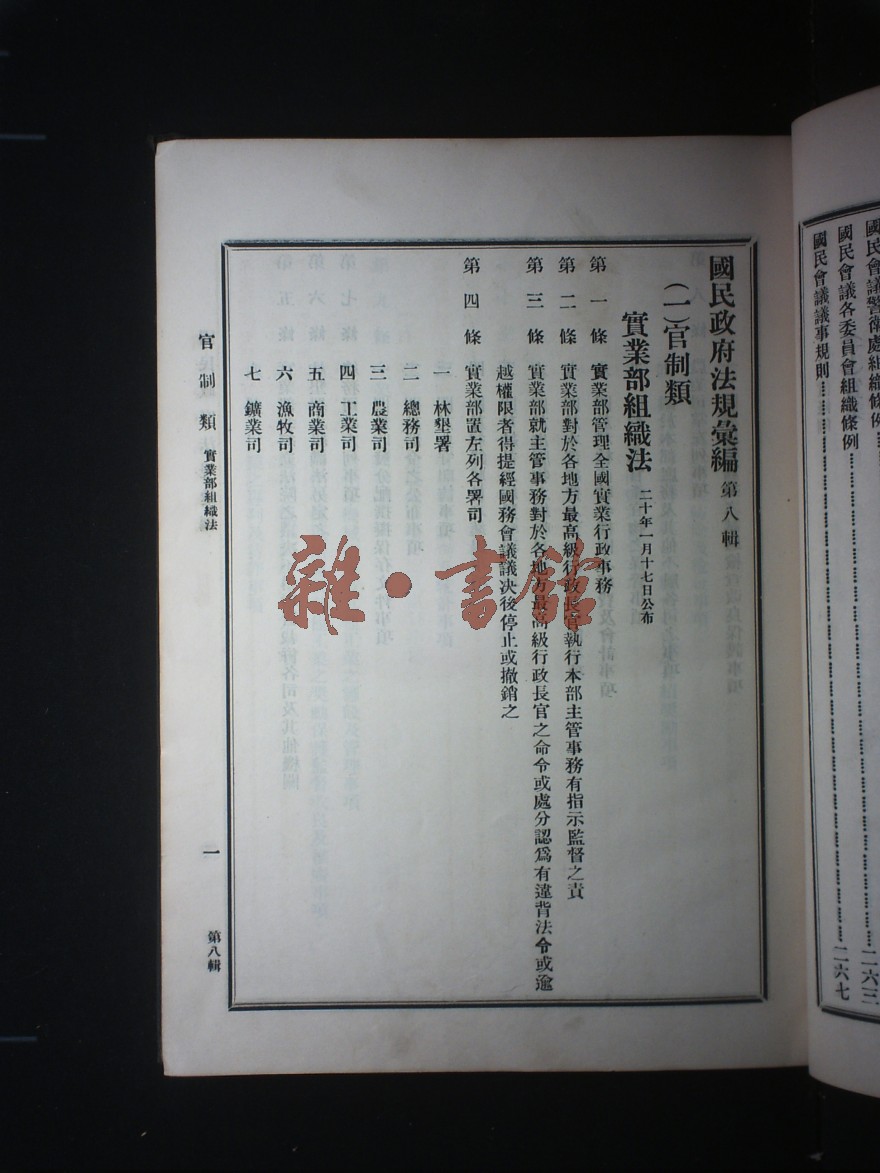 國民會議警衛處組織條例
二六三
國民會議各委員會組織條例
國民會議議事規則
二六七
國民政府法規彙編 第八輯
(一)官制類
實業部組織法 二十年一月十七日公布
第一條 實業部管理全國實業行政事務
第二條 實業部對於各地方最高級行政長官執行本部主管事務有指示監督之責
第三條 實業部就主管事務對於各地方最高級行政長官之命令或處分認爲有違背法令或逾
越權限者得提經國務會議議決後停止或撤銷之
第四條 實業部置左列各署司
一 林墾署
二 總務司
三 農業司
四 工業司
五 商業司
六 漁牧司
七 鑛業司
官制類 實業部組織法
一
第八輯
雜·書館